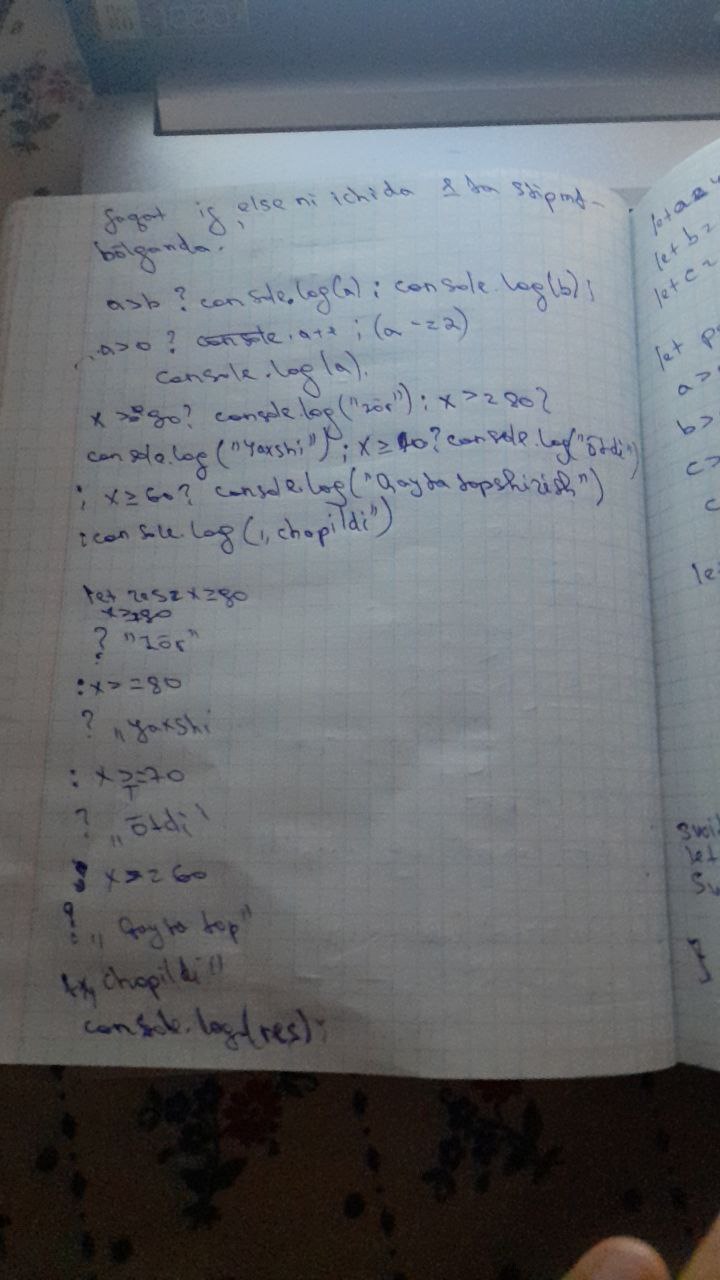 faqat if, else ni ichida 1 ta stipmt-
bōlganda.
a>b ? console.log(a) : console.log(b);
a>0 ? console. a++ : (a -= 2)
console.log(a).
x >= 90? console.log("zōr") : x >= 80?
console.log("Yaxshi") : x ≥ 70? console.log("ōtdi")
: x ≥ 60? console.log("Qayta topshirish")
: console.log(„chopildi")
let res = x ≥ 90
x ≥ 90
? "zōr"
: x >= 80
? „yaxshi
: x >= 70
? „ōtdi"
: x >= 60
? „Qayta top"
„chopildi"
console.log(res);
let
let b =
let c =
let
a >
b >
c >
c
le
let
}